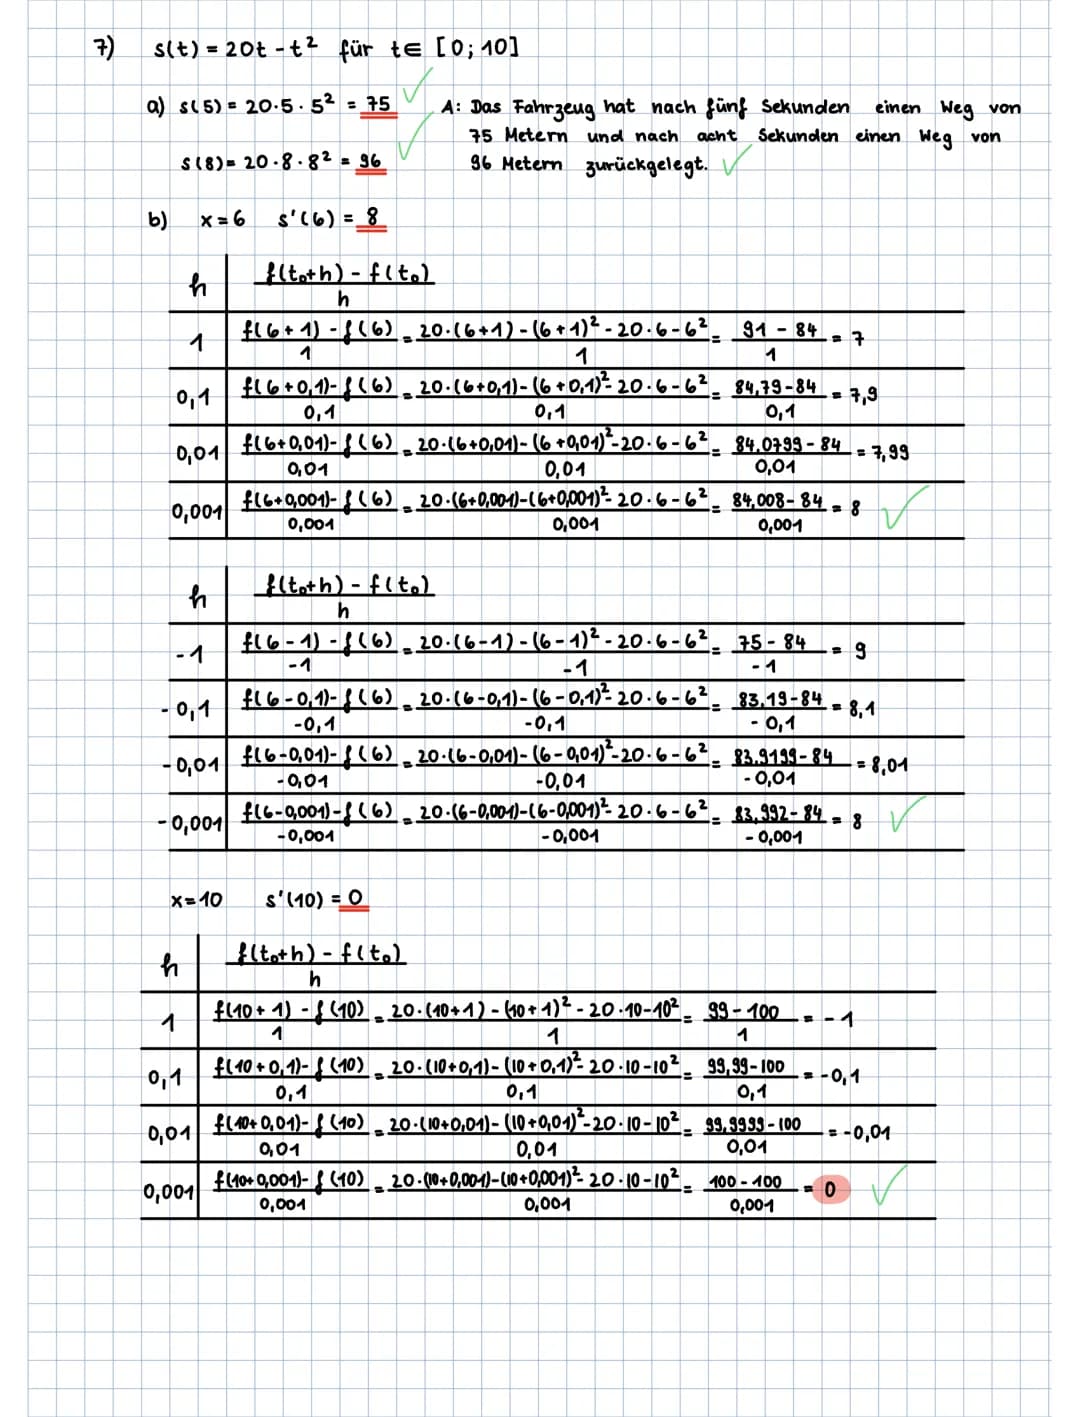 7) s(t) = 20t - t² für t∈ [0; 10]
a) s(5) = 20·5·5² = 75 A: Das Fahrzeug hat nach fünf Sekunden einen Weg von
75 Metern und nach acht Sekunden einen Weg von
s(8) = 20·8·8² = 96 96 Metern zurückgelegt.
b) x=6 s'(6) = 8
h f(t₀+h) - f(t₀)
h
1 f(6+1) - f(6) = 20·(6+1) - (6+1)² - 20·6-6² = 91 - 84 = 7
1 1 1
0,1 f(6+0,1)- f(6) = 20·(6+0,1)- (6+0,1)²- 20·6-6² = 84,79-84 = 7,9
0,1 0,1 0,1
0,01 f(6+0,01)- f(6) = 20·(6+0,01)- (6+0,01)²-20·6-6² = 84,0799-84 = 7,99
0,01 0,01 0,01
0,001 f(6+0,001)- f(6) = 20·(6+0,001)-(6+0,001)²- 20·6-6² = 84,008-84 = 8
0,001 0,001 0,001
h f(t₀+h) - f(t₀)
h
-1 f(6-1) - f(6) = 20·(6-1) - (6-1)² - 20·6-6² = 75 - 84 = 9
-1 -1 -1
-0,1 f(6-0,1)- f(6) = 20·(6-0,1)- (6-0,1)²- 20·6-6² = 83,19-84 = 8,1
-0,1 -0,1 -0,1
-0,01 f(6-0,01)- f(6) = 20·(6-0,01)- (6-0,01)²-20·6-6² = 83,9199-84 = 8,01
-0,01 -0,01 -0,01
-0,001 f(6-0,001)- f(6) = 20·(6-0,001)-(6-0,001)²- 20·6-6² = 83,992-84 = 8
-0,001 -0,001 -0,001
x=10 s'(10) = 0
h f(t₀+h) - f(t₀)
h
1 f(10+1) - f(10) = 20·(10+1) - (10+1)² - 20·10-10² = 99-100 = -1
1 1 1
0,1 f(10+0,1)- f(10) = 20·(10+0,1)- (10+0,1)²- 20·10-10² = 99,99-100 = -0,1
0,1 0,1 0,1
0,01 f(10+0,01)- f(10) = 20·(10+0,01)- (10+0,01)²-20·10-10² = 99,9999-100 = -0,01
0,01 0,01 0,01
0,001 f(10+0,001)- f(10) = 20·(10+0,001)-(10+0,001)²- 20·10-10² = 100-100 = 0
0,001 0,001 0,001